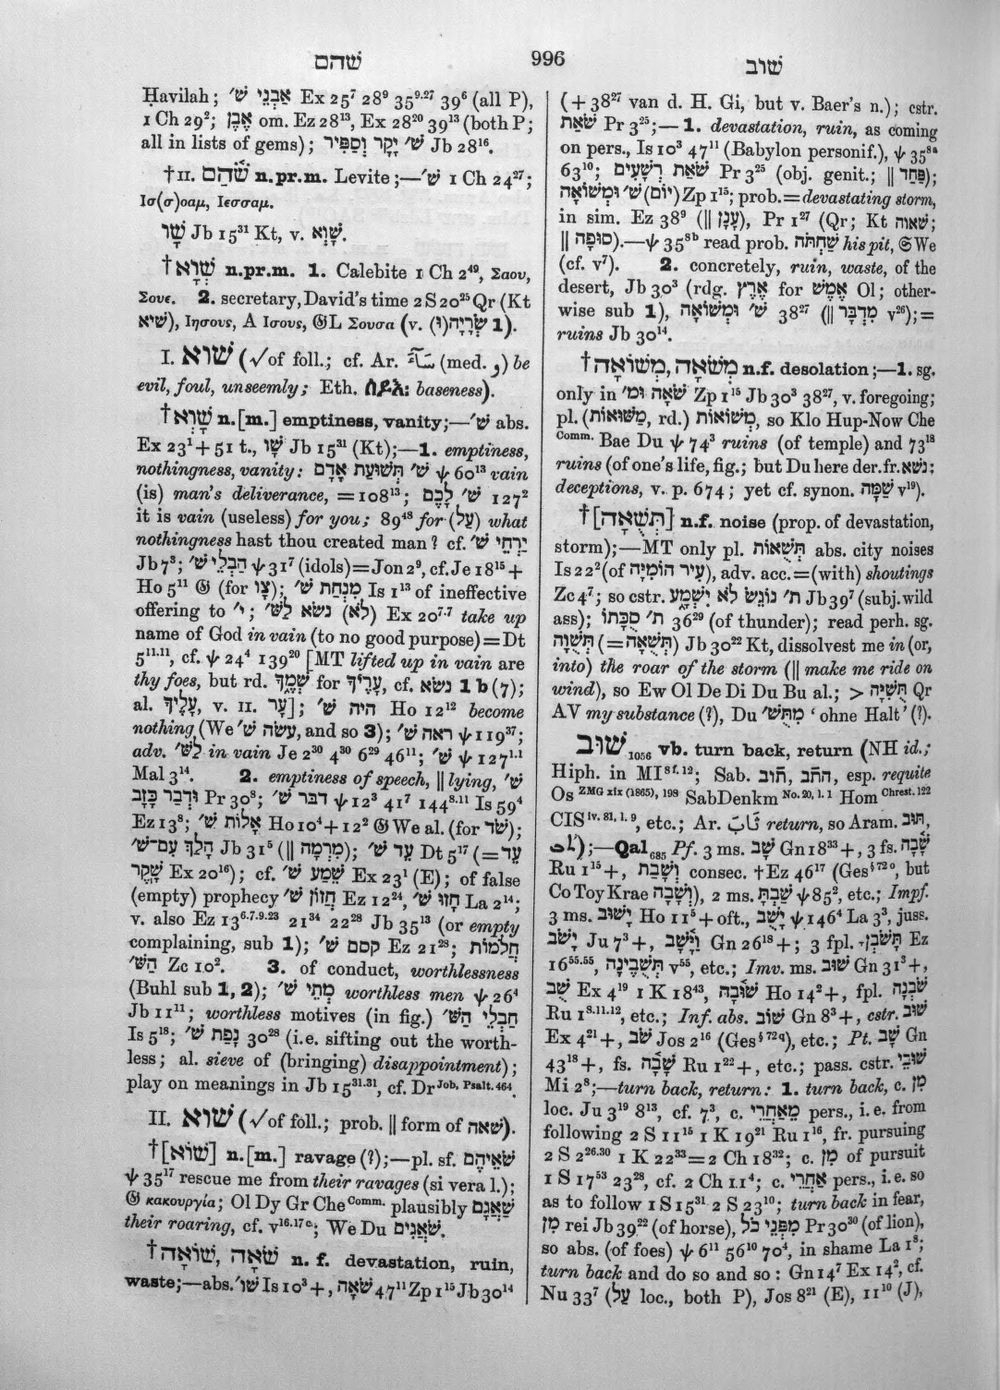 שׁהם
996
שׁוב
Ḥavilah; אַבְנֵי שׁ׳ Ex 25⁷ 28⁹ 35⁹·²⁷ 39⁶ (all P),
1 Ch 29²; אֶבֶן om. Ez 28¹³, Ex 28²⁰ 39¹³ (both P;
all in lists of gems); שׁ׳ יָקָר וְסַפִּיר Jb 28¹⁶.
†II. שֹׁהַם n.pr.m. Levite;—שׁ׳ 1 Ch 24²⁷;
Ισ(σ)οαμ, Ιεσσαμ.
שָׁו Jb 15³¹ Kt, v. שָׁוְא.
†שְׁוָא n.pr.m. 1. Calebite 1 Ch 2⁴⁹, Σαου,
Σουε. 2. secretary, David's time 2 S 20²⁵ Qr (Kt
שׁיא), Ιησους, A Ισους, 𝔊L Σουσα (v. שְׂרָיָה(וּ) 1).
I. שׁוא (√of foll.; cf. Ar. (med. و) be
evil, foul, unseemly; Eth. baseness).
†שָׁוְא n.[m.] emptiness, vanity;—שׁ׳ abs.
Ex 23¹ + 51 t., שָׁו Jb 15³¹ (Kt);—1. emptiness,
nothingness, vanity: שׁ׳ תְּשׁוּעַת אָדָם ψ 60¹³ vain
(is) man's deliverance, = 108¹³; שׁ׳ לָכֶם 127²
it is vain (useless) for you; 89⁴⁸ for (עַל) what
nothingness hast thou created man? cf. יַרְחֵי שׁ׳
Jb 7³; הַבְלֵי שׁ׳ ψ 31⁷ (idols) = Jon 2⁹, cf. Je 18¹⁵ +
Ho 5¹¹ 𝔊 (for צַו); מִנְחַת שׁ׳ Is 1¹³ of ineffective
offering to י׳; (לֹא) נשׂא לַשּׁ׳ Ex 20⁷·⁷ take up
name of God in vain (to no good purpose) = Dt
5¹¹·¹¹, cf. ψ 24⁴ 139²⁰ [MT lifted up in vain are
thy foes, but rd. שְׁמֶךָ for עָרֶיךָ, cf. נשׂא 1 b (7);
al. עָלֶיךָ, v. II. עָר]; היה שׁ׳ Ho 12¹² become
nothing (We עשׂה שׁ׳, and so 3); ראה שׁ׳ ψ 119³⁷;
adv. לַשּׁ׳ in vain Je 2³⁰ 4³⁰ 6²⁹ 46¹¹; שׁ׳ ψ 127¹·¹
Mal 3¹⁴. 2. emptiness of speech, ‖ lying, שׁ׳
וּדְבַר כָּזָב Pr 30⁸; דבר שׁ׳ ψ 12³ 41⁷ 144⁸·¹¹ Is 59⁴
Ez 13⁸; אָלוֹת שׁ׳ Ho 10⁴ + 12² 𝔊 We al. (for שֹׁד);
הָלַךְ עִם־שׁ׳ Jb 31⁵ (‖ מִרְמָה); עֵד שׁ׳ Dt 5¹⁷ (= עֵד
שָׁקֶר Ex 20¹⁶); cf. שֵׁמַע שׁ׳ Ex 23¹ (E); of false
(empty) prophecy חֲזוֹן שׁ׳ Ez 12²⁴, חָזוּ שׁ׳ La 2¹⁴;
v. also Ez 13⁶·⁷·⁹·²³ 21³⁴ 22²⁸ Jb 35¹³ (or empty
complaining, sub 1); קסם שׁ׳ Ez 21²⁸; חֲלֹמוֹת
הַשּׁ׳ Zc 10². 3. of conduct, worthlessness
(Buhl sub 1, 2); מְתֵי שׁ׳ worthless men ψ 26⁴
Jb 11¹¹; worthless motives (in fig.) חַבְלֵי הַשּׁ׳
Is 5¹⁸; נָפַת שׁ׳ 30²⁸ (i.e. sifting out the worth-
less; al. sieve of (bringing) disappointment);
play on meanings in Jb 15³¹·³¹, cf. Dr Job, Psalt. 464.
II. שׁוא (√of foll.; prob. ‖ form of שׁאה).
†[שׁוֹא] n.[m.] ravage (?);—pl. sf. שֹׁאֵיהֶם
ψ 35¹⁷ rescue me from their ravages (si vera l.);
𝔊 κακουργία; Ol Dy Gr Che Comm. plausibly שַׁאֲגָם
their roaring, cf. v¹⁶·¹⁷ᶜ; We Du שֹׁאֲגִים.
†שׁוֹאָה, שֹׁאָה n.f. devastation, ruin,
waste;—abs. שׁו׳ Is 10³ +, שֹׁאָה 47¹¹ Zp 1¹⁵ Jb 30¹⁴
(+ 38²⁷ van d. H. Gi, but v. Baer's n.); cstr.
שֹׁאַת Pr 3²⁵;—1. devastation, ruin, as coming
on pers., Is 10³ 47¹¹ (Babylon personif.), ψ 35⁸ᵃ
63¹⁰; שֹׁאַת רְשָׁעִים Pr 3²⁵ (obj. genit.; ‖ פַּחַד);
(יוֹם) שׁ׳ וּמְשׁוֹאָה Zp 1¹⁵; prob. = devastating storm,
in sim. Ez 38⁹ (‖ עָנָן), Pr 1²⁷ (Qr; Kt שׁאוה;
‖ סוּפָה).—ψ 35⁸ᵇ read prob. שַׁחְתֹּה his pit, 𝔖 We
(cf. v⁷). 2. concretely, ruin, waste, of the
desert, Jb 30³ (rdg. אֶרֶץ for אֶמֶשׁ Ol; other-
wise sub 1), שׁ׳ וּמְשׁוֹאָה 38²⁷ (‖ מִדְבָּר v²⁶); =
ruins Jb 30¹⁴.
†מְשׁוֹאָה, מְשֹׁאָה n.f. desolation;—1. sg.
only in שֹׁאָה וּמ׳ Zp 1¹⁵ Jb 30³ 38²⁷, v. foregoing;
pl. (מַשּׁוּאוֹת, rd.) מְשׁוֹאוֹת, so Klo Hup-Now Che
Comm. Bae Du ψ 74³ ruins (of temple) and 73¹⁸
ruins (of one's life, fig.; but Du here der. fr. נשׁא:
deceptions, v. p. 674; yet cf. synon. שַׁמָּה v¹⁹).
†[תְּשֻׁאָה] n.f. noise (prop. of devastation,
storm);—MT only pl. תְּשֻׁאוֹת abs. city noises
Is 22² (of עִיר הוֹמִיָּה), adv. acc. = (with) shoutings
Zc 4⁷; so cstr. ת׳ נוֹגֵשׂ לֹא יִשְׁמָע Jb 39⁷ (subj. wild
ass); ת׳ סֻכָּתוֹ 36²⁹ (of thunder); read perh. sg.
תְּשֻׁוָה (= תְּשֻׁאָה) Jb 30²² Kt, dissolvest me in (or,
into) the roar of the storm (‖ make me ride on
wind), so Ew Ol De Di Du Bu al.; > תֻּשִׁיָּה Qr
AV my substance (?), Du מִתֻּשׁ׳ ‘ohne Halt’ (?).
שׁוּב₁₀₅₆ vb. turn back, return (NH id.;
Hiph. in MI⁸ ᶠ·¹²; Sab. תוב, התֿב, esp. requite
Os ZMG xix (1865), 198 SabDenkm No. 20, l. 1 Hom Chrest. 122
CIS iv. 81, l. 9, etc.; Ar. ثَابَ return, so Aram. תּוּב,
);—Qal₆₈₅ Pf. 3 ms. שָׁב Gn 18³³ +, 3 fs. שָׁבָה
Ru 1¹⁵ +, וְשָׁבַת consec. †Ez 46¹⁷ (Ges §72 o, but
Co Toy Krae וְשָׁבָה), 2 ms. שַׁבְתָּ ψ 85², etc.; Impf.
3 ms. יָשׁוּב Ho 11⁵ + oft., יָשֹׁב ψ 146⁴ La 3³, juss.
יָשֹׁב Ju 7³ +, וַיָּשָׁב Gn 26¹⁸ +; 3 fpl. תָּשֹׁבְןָ Ez
16⁵⁵·⁵⁵, תְּשֻׁבֶינָה v⁵⁵, etc.; Imv. ms. שׁוּב Gn 31³ +,
שֻׁב Ex 4¹⁹ 1 K 18⁴³, שׁוּבָה Ho 14² +, fpl. שֹׁבְנָה
Ru 1⁸·¹¹·¹², etc.; Inf. abs. שׁוֹב Gn 8³ +, cstr. שׁוּב
Ex 4²¹ +, שֹׁב Jos 2¹⁶ (Ges §72 q), etc.; Pt. שָׁב Gn
43¹⁸ +, fs. שָׁבָה Ru 1²² +, etc.; pass. cstr. שׁוּבֵי
Mi 2⁸;—turn back, return: 1. turn back, c. מִן
loc. Ju 3¹⁹ 8¹³, cf. 7³, c. מֵאַחֲרֵי pers., i.e. from
following 2 S 11¹⁵ 1 K 19²¹ Ru 1¹⁶, fr. pursuing
2 S 2²⁶·³⁰ 1 K 22³³ = 2 Ch 18³²; c. מִן of pursuit
1 S 17⁵³ 23²⁸, cf. 2 Ch 11⁴; c. אַחֲרֵי pers., i.e. so
as to follow 1 S 15³¹ 2 S 23¹⁰; turn back in fear,
מִן rei Jb 39²² (of horse), מִפְּנֵי כֹל Pr 30³⁰ (of lion),
so abs. (of foes) ψ 6¹¹ 56¹⁰ 70⁴, in shame La 1⁸;
turn back and do so and so: Gn 14⁷ Ex 14², cf.
Nu 33⁷ (עַל loc., both P), Jos 8²¹ (E), 11¹⁰ (J),